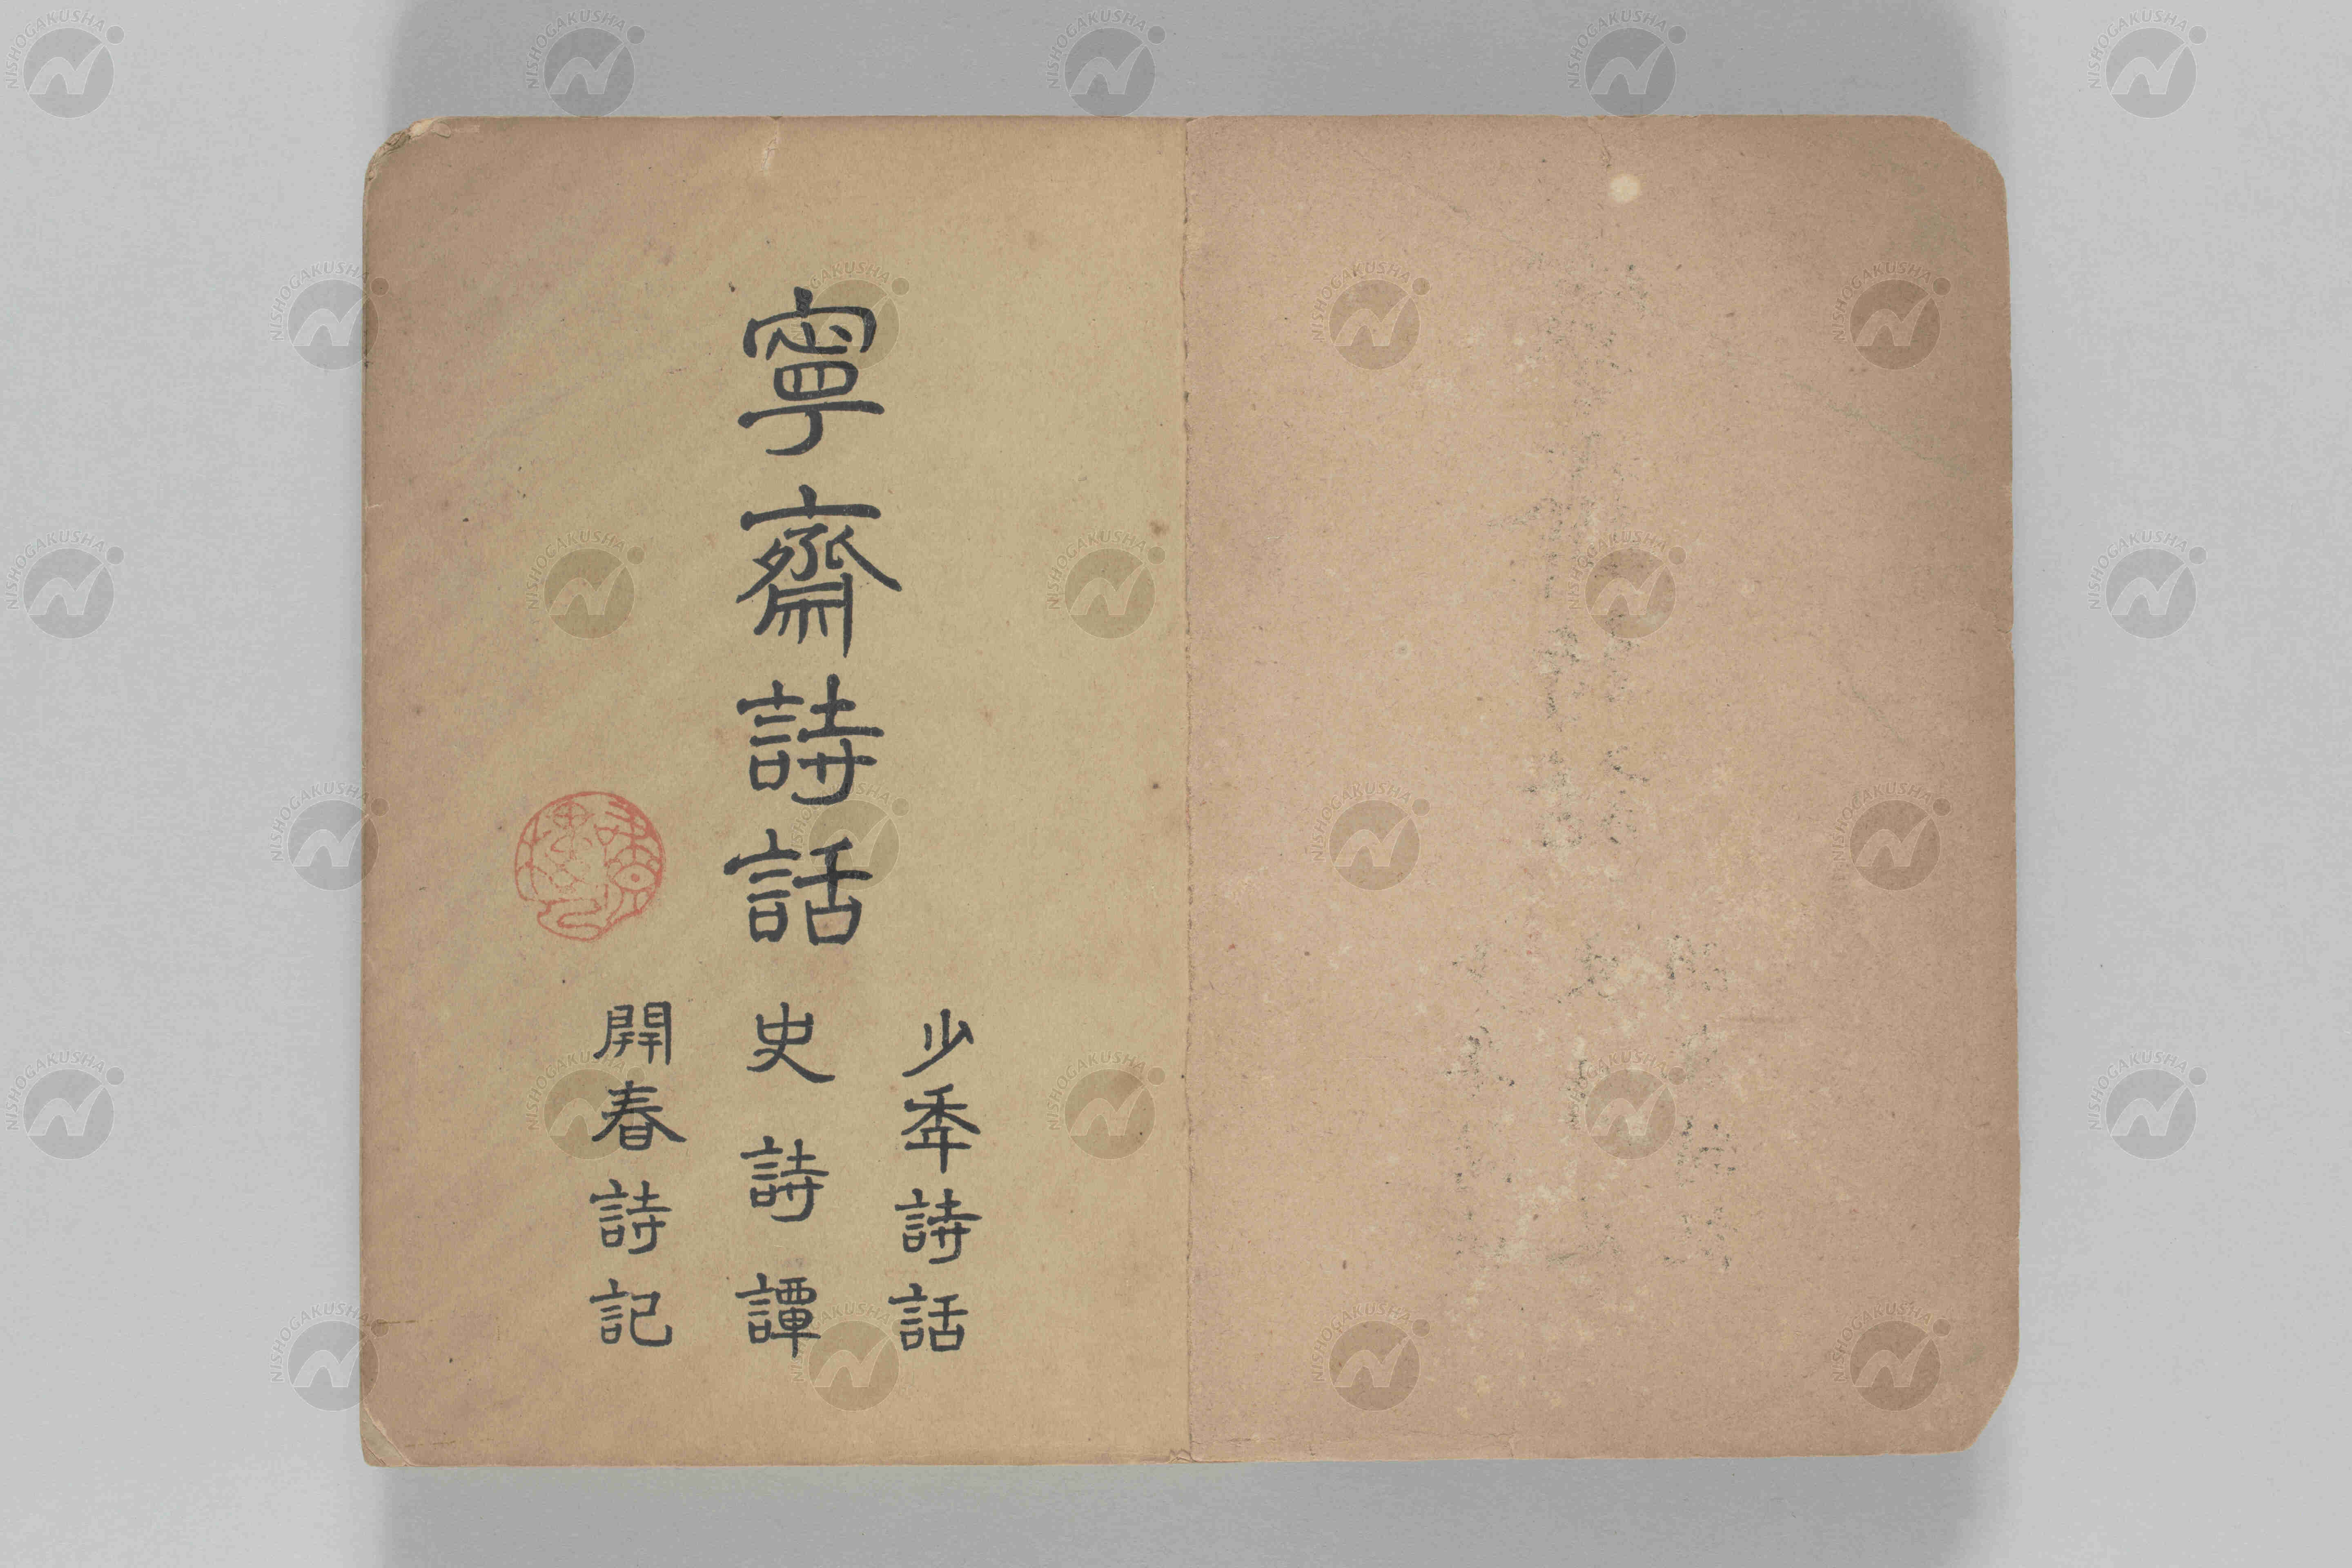 寧齋詩話
少年詩話
史詩譚
開春詩記
NISHOGAKUSHA